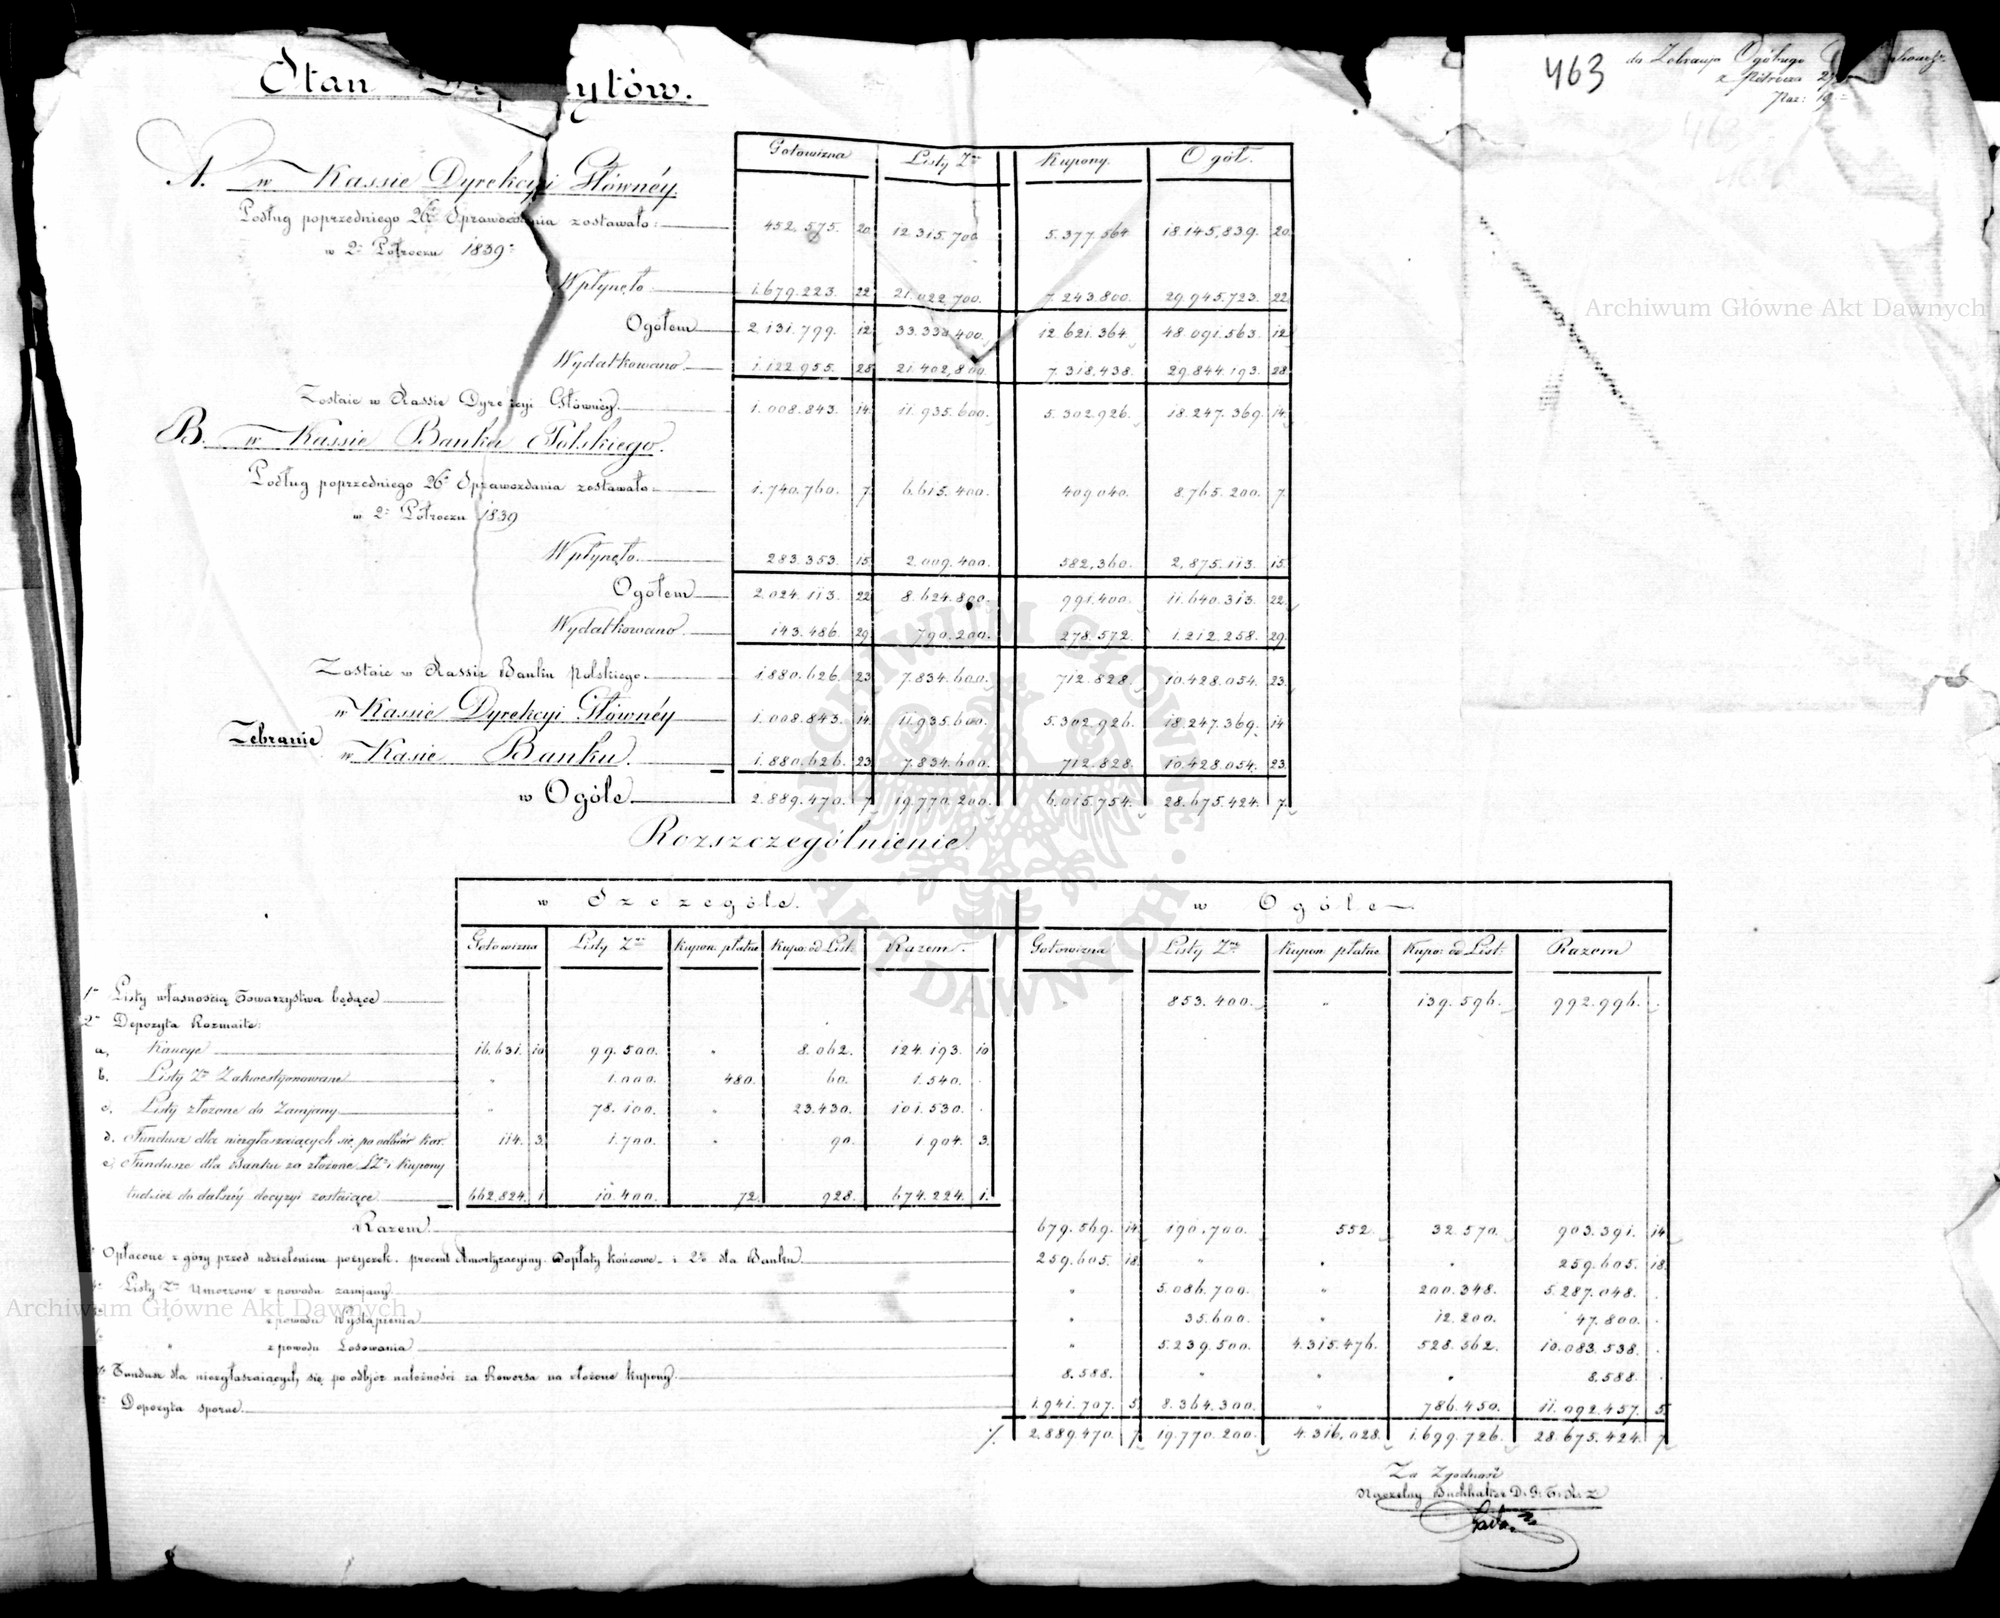 463
do Zebrania Ogólnego
z Półrocza 2go
Paź: 19
Stan ytów.
Gotowizna | Listy Zne | Kupony. | Ogół.
A. w Kassie Dyrekcyi Główney.
Podług poprzedniego 26o Sprawozdania zostawało: 452.575. 20 | 12.315.700 | 5.377.564 | 18.145.839. 20
w 2m Półroczu 1839o
Wpłynęło 1.679.223. 22 | 21.022.700. | 7.243.800. | 29.945.723. 22
Ogółem 2.131.799. 12 | 33.338.400. | 12.621.364. | 48.091.563. 12
Wydatkowano 1.122.955. 28 | 21.402.800. | 7.318.438. | 29.844.193. 28
Zostaie w Kassie Dyrekcyi Główney 1.008.843. 14 | 11.935.600. | 5.302.926. | 18.247.369. 14
B. w Kassie Banku Polskiego.
Podług poprzedniego 26o Sprawozdania zostawało 1.740.760. 7 | 6.615.400. | 409.040. | 8.765.200. 7
w 2m Półroczu 1839
Wpłynęło 283.353. 15 | 2.009.400. | 582.360. | 2.875.113. 15
Ogółem 2.024.113. 22 | 8.624.800. | 991.400. | 11.640.313. 22
Wydatkowano 143.486. 29 | 790.200. | 278.572. | 1.212.258. 29
Zostaie w Kassie Banku Polskiego. 1.880.626. 23 | 7.834.600. | 712.828. | 10.428.054. 23
w Kassie Dyrekcyi Główney 1.008.843. 14 | 11.935.600. | 5.302.926. | 18.247.369. 14
Zebranie
w Kasie Banku. 1.880.626. 23 | 7.834.600. | 712.828. | 10.428.054. 23
w Ogóle 2.889.470. 7 | 19.770.200. | 6.015.754. | 28.675.424. 7
Rozszczególnienie.
w Szczególe. | w Ogóle
Gotowizna | Listy Zne | Kupon: płatne | Kupo: od List: | Razem. | Gotowizna | Listy Zne | Kupon: płatne | Kupo: od List: | Razem
1o Listy własnością Towarzystwa będące " | 853.400. | " | 139.596. | 992.996.
2o Depozyta Rozmaite:
a, Kaucye 16.631. 10 | 99.500. | " | 8.062. | 124.193. 10
b. Listy Zne Zakwestyonowane " | 1.000. | 480. | 60. | 1.540.
c. Listy złożone do Zamiany " | 78.100. | " | 23.430. | 101.530.
d. Fundusz dla niezgłaszaiących się po odbiór kar: 114. 3 | 1.700. | " | 90. | 1904. 3
e, Fundusze dla Banku za złożone LZne i Kupony
tudzież do dalszéy decyzyi zostaiące 662.824. 1 | 10.400. | 72. | 928. | 674.224. 1.
Razem 679.569. 14 | 190.700. | 552. | 32.570. | 903.391. 14
Opłacone z góry przed udzieleniem pożyczek. procent Amortyzacyiny. Dopłaty końcowe. i 2% dla Banku 259.605. 18 | " | " | " | 259.605. 18
Listy Zne Umorzone z powodu zamiany " | 5.086.700. | " | 200.348. | 5.287.048.
z powodu Wystąpienia " | 35.600. | " | 12.200. | 47.800.
" z powodu Losowania " | 5.239.500. | 4.315.476. | 528.562. | 10.083.538.
Fundusz dla niezgłaszaiących się po odbiór należności za Rewersa na złożone kupony 8.588. | " | " | " | 8.588.
Depozyta sporne 1.941.707. 5 | 8.364.300. | " | 786.450. | 11.092.457. 5
./. 2.889.470. 7 | 19.770.200. | 4.316.028. | 1.699.726. | 28.675.424. 7
Za Zgodność
Naczelny Buchhalter D. G. T. K. Z
Archiwum Główne Akt Dawnych
Archiwum Główne Akt Dawnych
ARCHIWUM GŁÓWNE AKT DAWNYCH